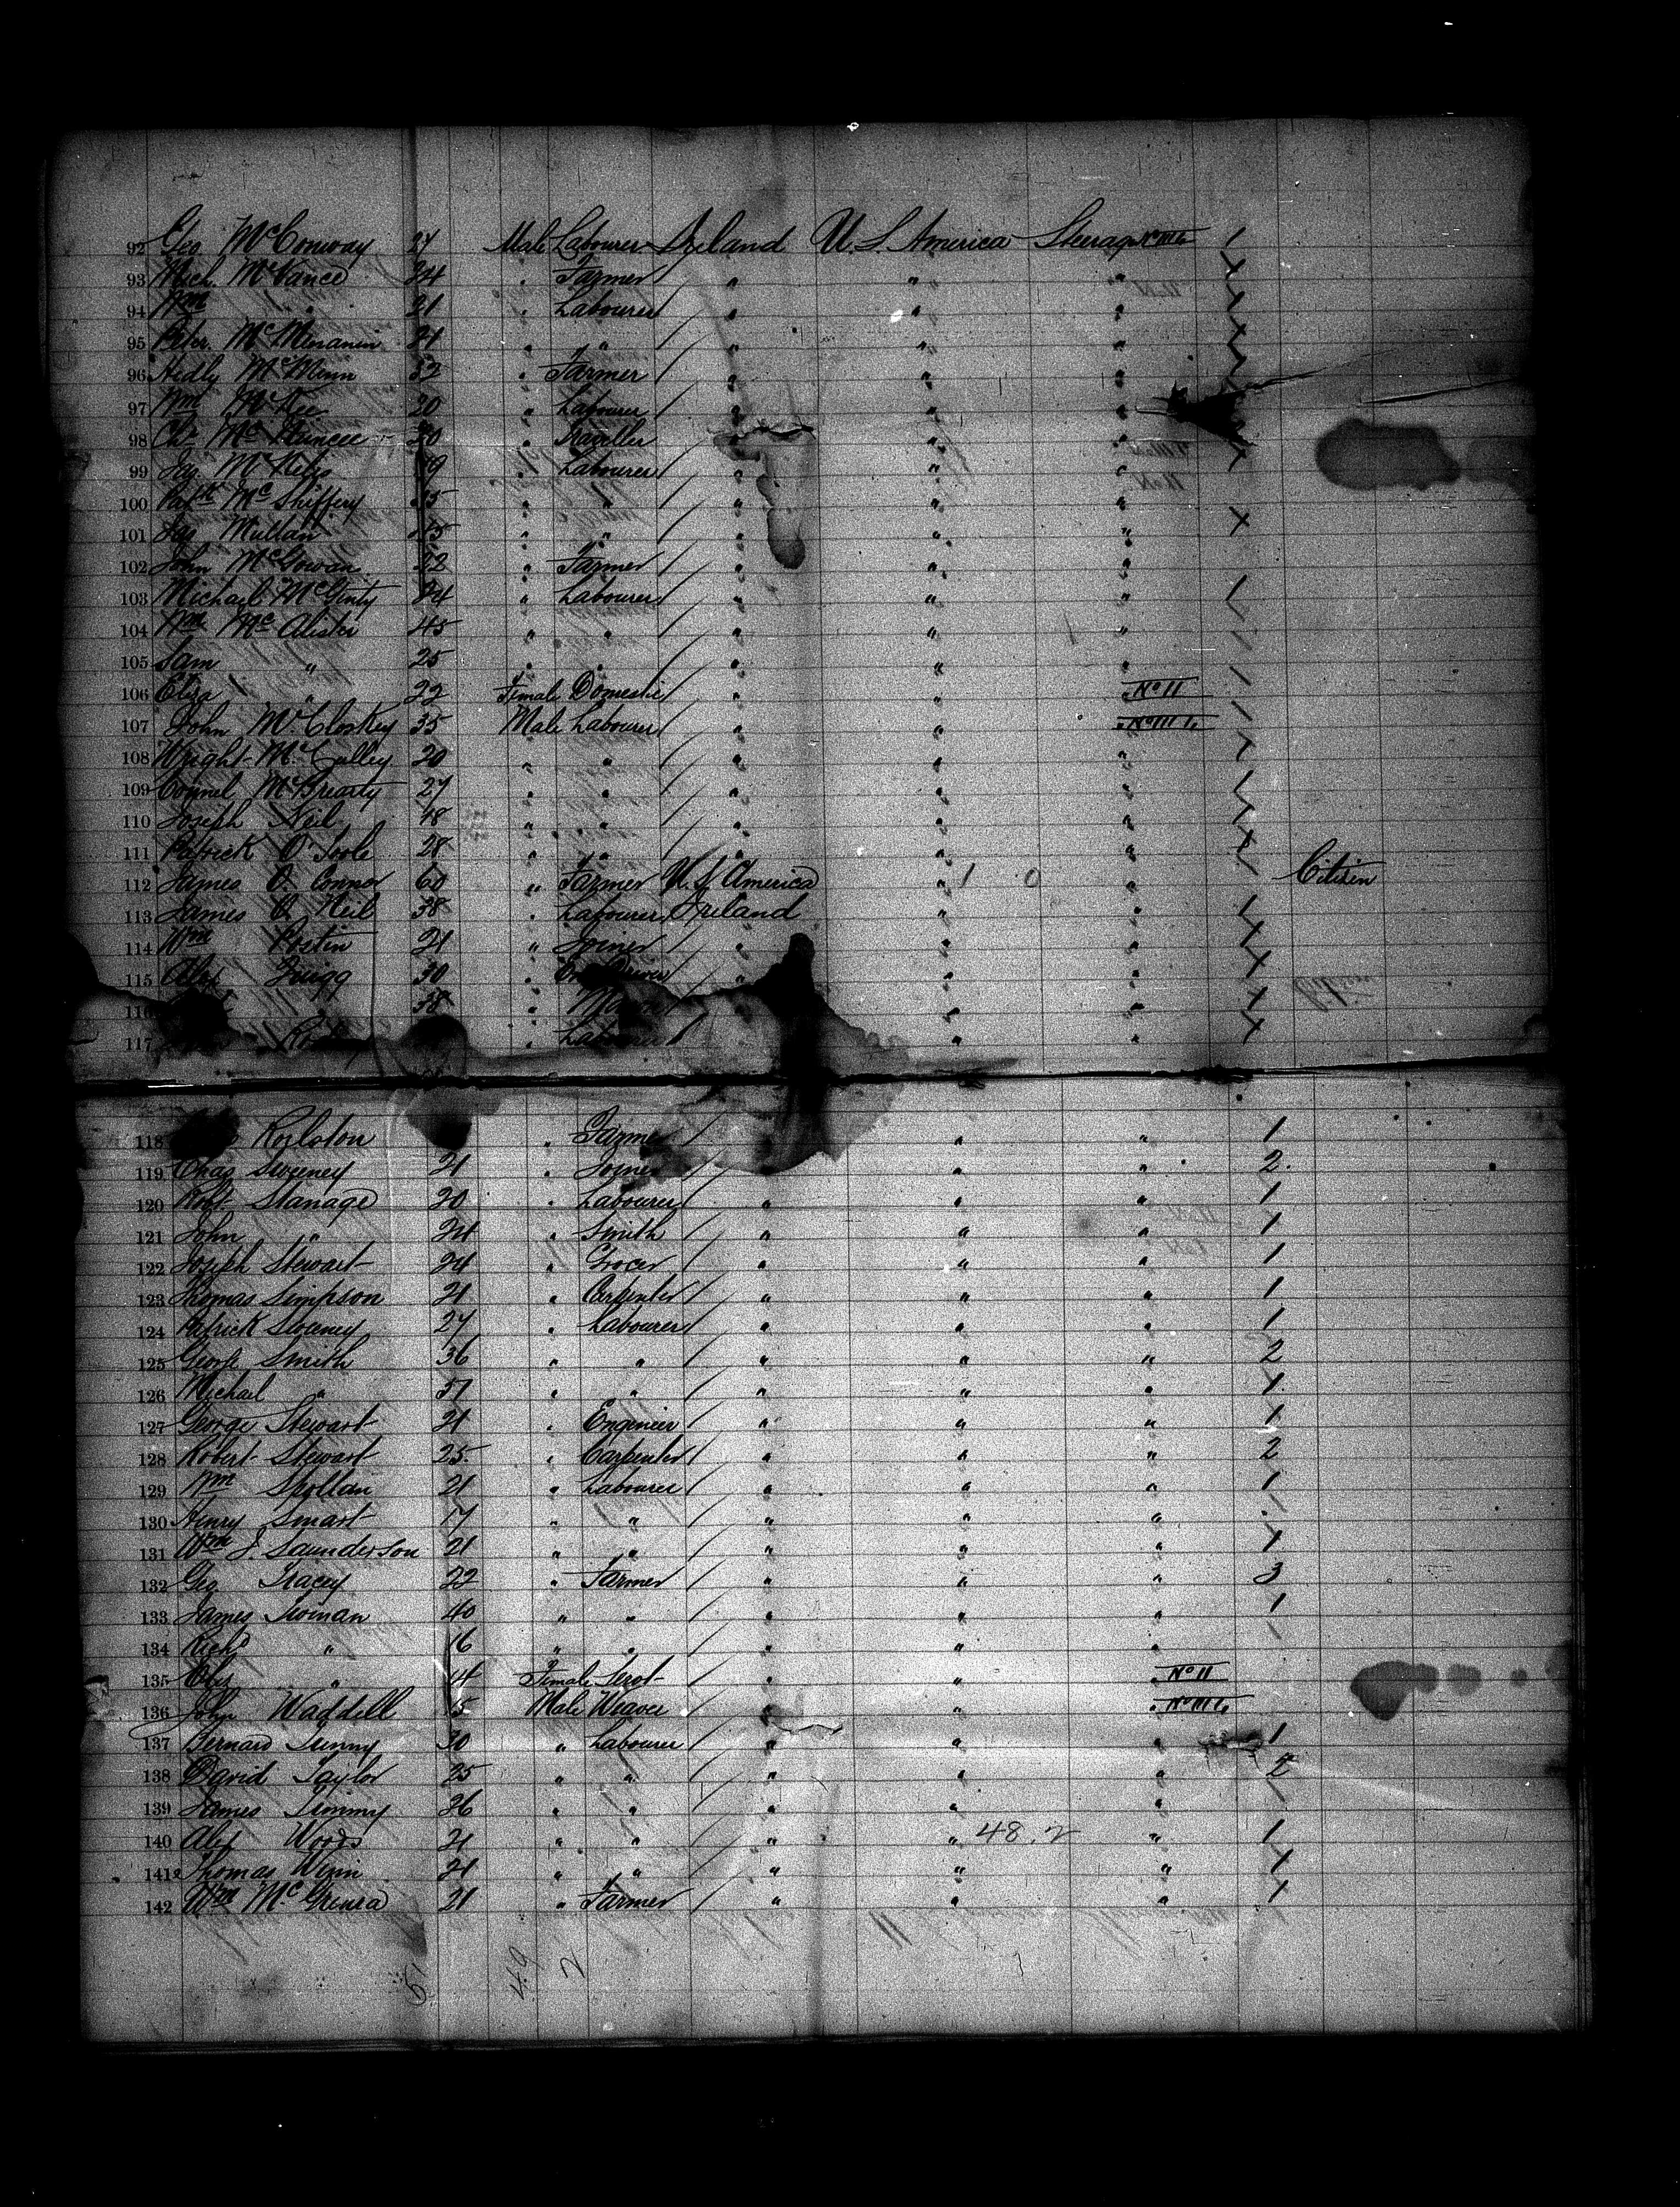 92 Geo. McConway 27 Male Labourer Ireland U. S. America Steerage No III L 1
93 Mich. McVance 24 " Farmer " " " 1
94 Wm " 21 " Labourer " " " 1
95 Peter. McMenamin 21 " " " " " 1
96 Hedly McMinn 32 " Farmer " " " 1
97 Wm McKee 20 " Labourer " " "
98 Chs Mc 30 " Traveller " " "
99 Jas. 19 " Labourer " " " 1
100 Patk Mc 35 " " " " "
101 Jas Mullan 25 " " " " " 1
102 John McGowan 22 " Farmer " " "
103 Michael McGinty 24 " Labourer " " " 1
104 Wm McAlister 45 " " " " "
105 Sam " 25 " " " " "
106 Eliza " 22 Female Domestic " " No II
107 John McCloskey 35 Male Labourer " " " No III L 1
108 Wright McCulley 20 " " " " " 1
109 Connel McBrearty 27 " " " " " 1
110 Joseph Neil 18 " " " " " 1
111 Patrick O'Toole 28 " " " " " 1
112 James O. Connor 60 " Farmer U. S. America " 1 0 " Citizen
113 James O. Neil 38 " Labourer Ireland " " 1
114 Wm Postin 21 " Joiner " " " 1
115 Alex 30 " " " " 1
116 38 " " " 1
117 " Labourer " " 1
118 Roulston " Farmer " " 1
119 Chas Sweeney 21 " Joiner " " 2
120 Robt. Stanage 20 " Labourer " " " 1
121 John " 24 " Smith " " " 1
122 Joseph Stewart 24 " Grocer " " " 1
123 Thomas Simpson 21 " Carpenter " " " 1
124 Patrick Sweeney 27 " Labourer " " " 1
125 George Smith 36 " " " " " 2
126 Michael " 37 " " " " " 1
127 George Stewart 21 " Engineer " " " 1
128 Robert Stewart 25 " Carpenter " " " 2
129 Wm Spollan 21 " Labourer " " " 1
130 Henry Smart 17 " " " " "
131 Wm J. Saunderson 21 " " " " " 1
132 Geo Tracey 22 " Farmer " " " 3
133 James Twinan 40 " " " " " 1
134 Richd " 16 " " " " "
135 Eliz " 14 Female Servt " " No II
136 John Waddell 15 Male Weaver " " " No III L
137 Bernard Tunny 30 " Labourer " " " 1
138 David Taylor 25 " " " " " 2
139 James Timmy 26 " " " " "
140 Alex Woods 21 " " " " 48.2 " 1
141 Thomas Winn 21 " " " " " 1
142 Wm McGrenra 21 " Farmer " " " 1
51 49 2